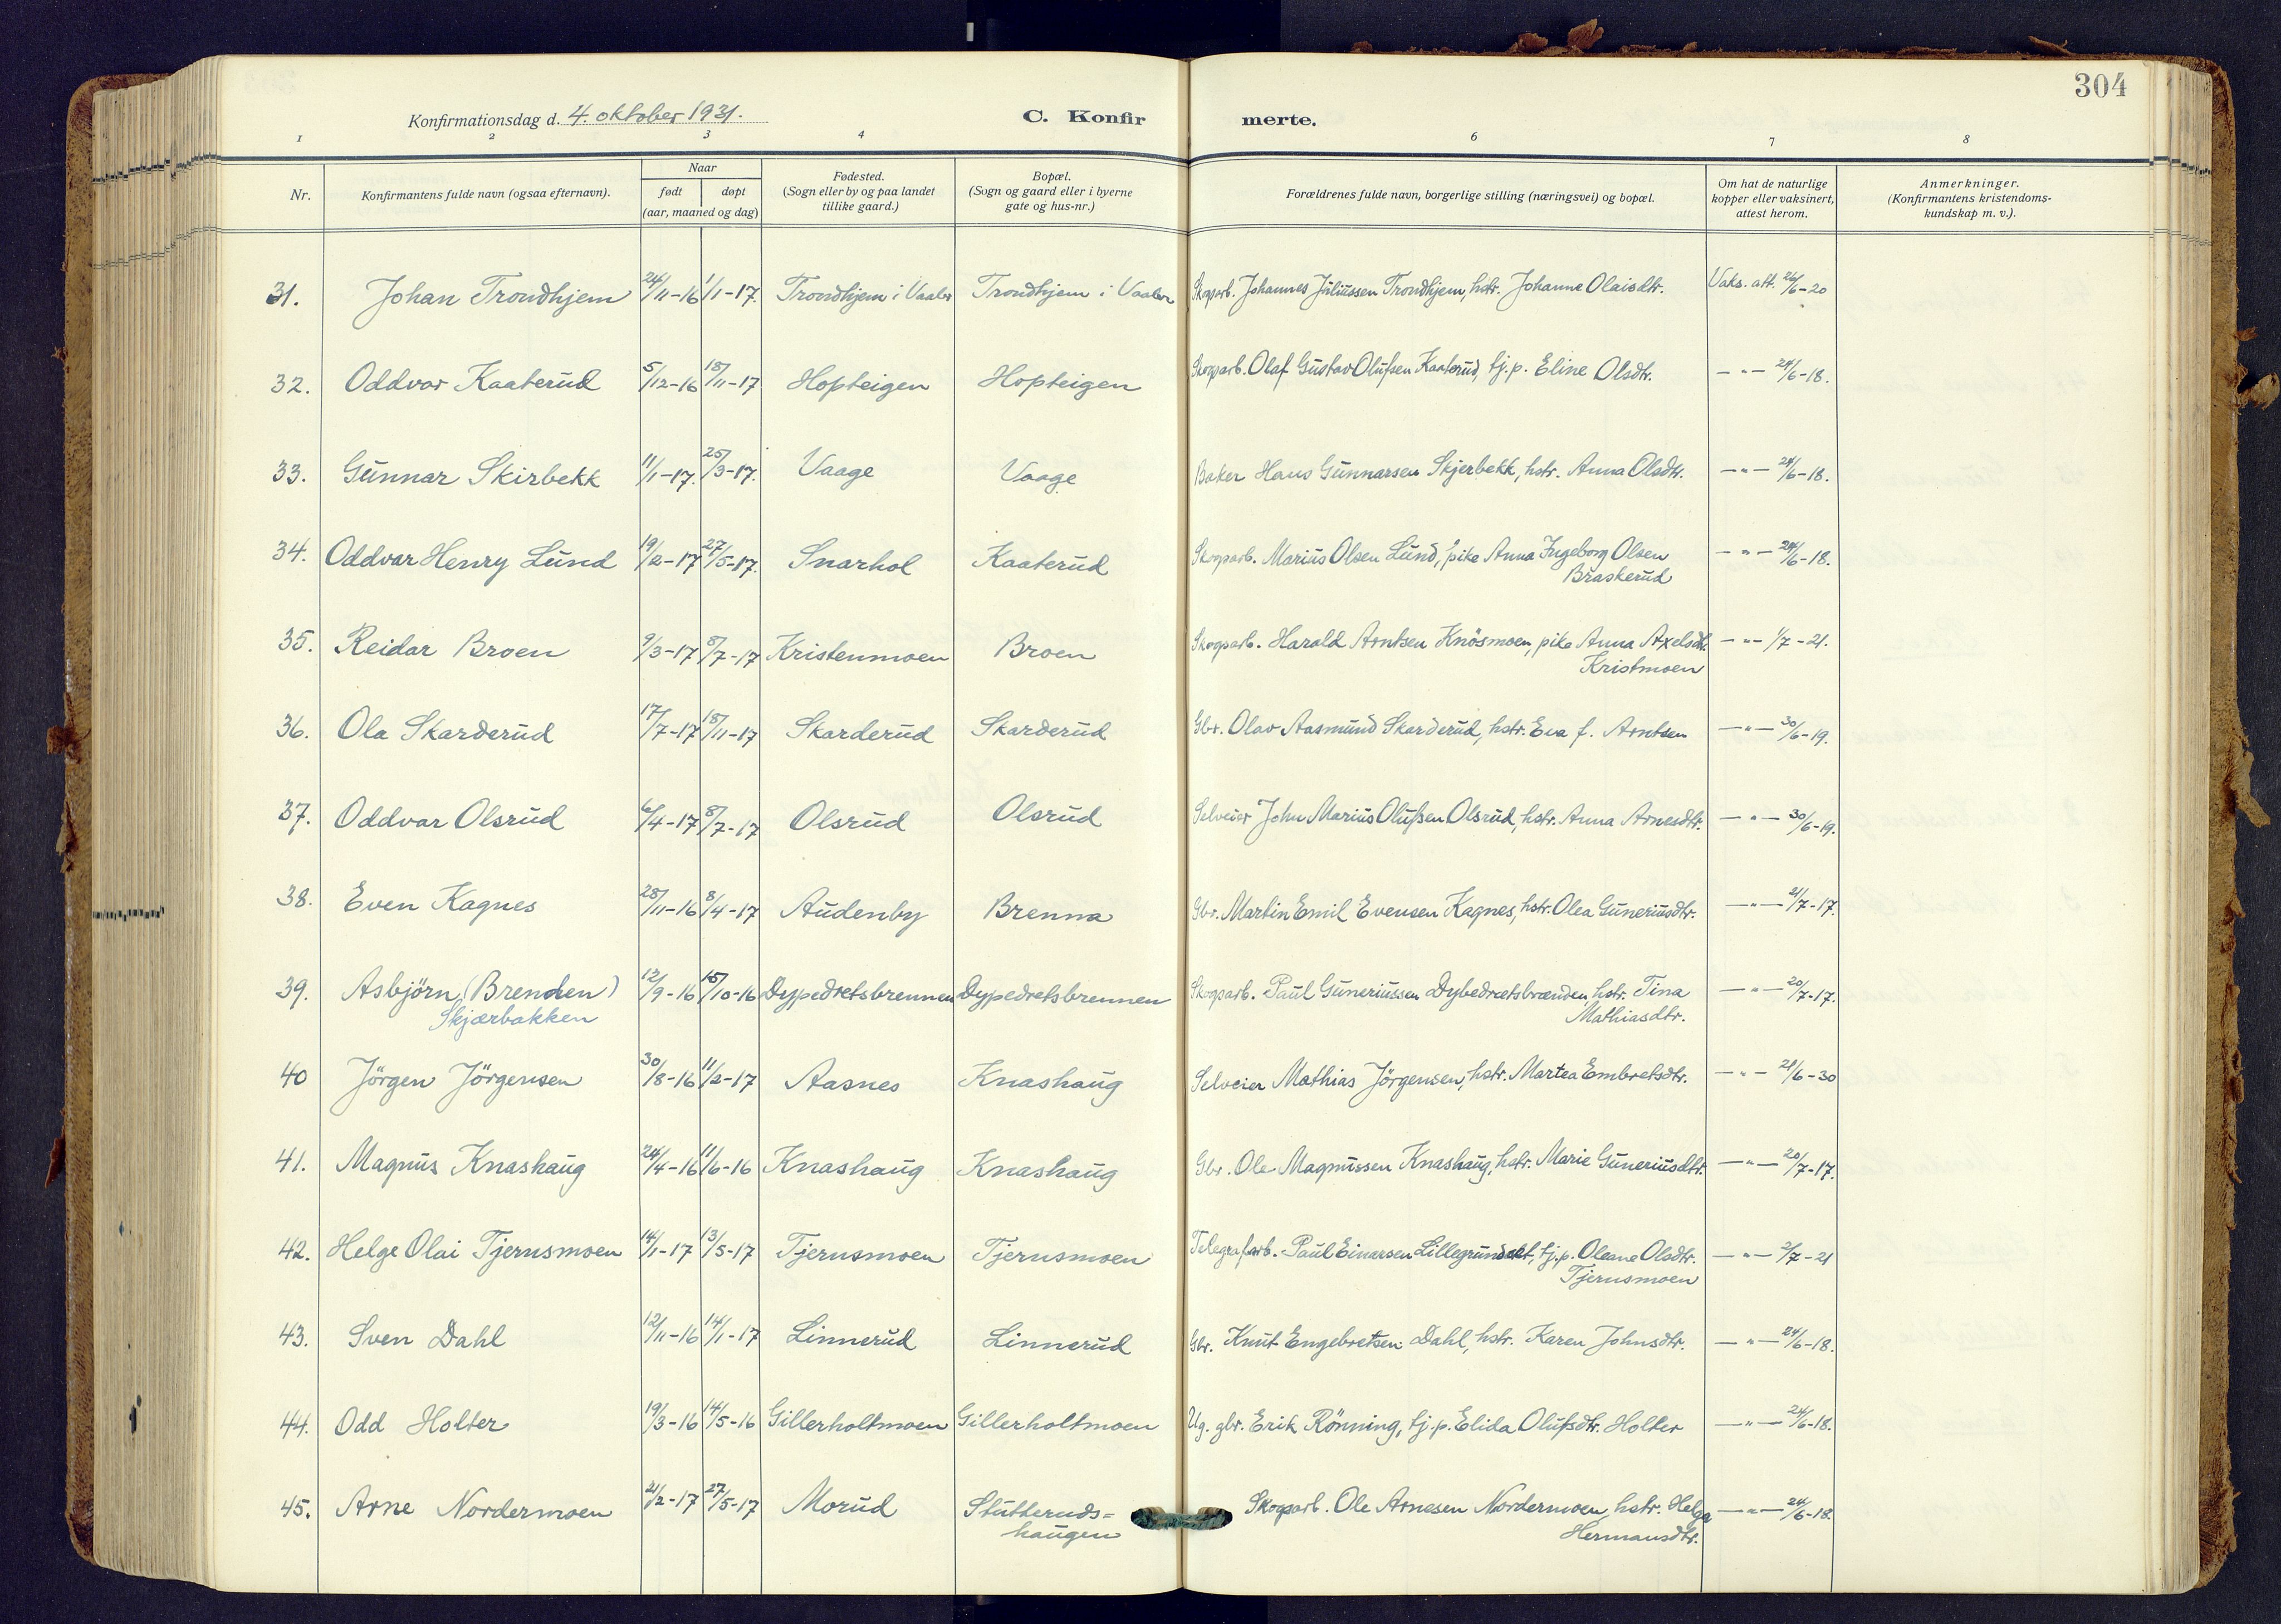 304
Konfirmationsdag d. 4. oktober 1931.
C. Konfirmerte.
1 2 3 4 6 7 8
Nr. | Konfirmantens fulde navn (ogsaa efternavn). | Naar født døpt (aar, maaned og dag) | Fødested. (Sogn eller by og paa landet tillike gaard.) | Bopæl. (Sogn og gaard eller i byerne gate og hus-nr.) | Forældrenes fulde navn, borgerlige stilling (næringsvei) og bopæl. | Om hat de naturlige kopper eller vaksinert, attest herom. | Anmerkninger. (Konfirmantens kristendoms-kundskap m. v.).
31. Johan Trondhjem 24/11-16 1/1-17. Trondhjem i Vaaler Trondhjem i Vaaler Skogarb. Johannes Juliussen Trondhjem, hstr. Johanne Olaisdtr. Vaks. att. 26/6-20
32. Oddvar Kaaterud 5/12-16 18/11-17 Hopteigen Hopteigen Skogsarb. Olaf Gustav Olufsen Kaaterud, tj.p. Eline Olsdtr. — " — 24/6-18.
33. Gunnar Skirbekk 11/1-17. 25/3-17. Vaage Vaage Baker Hans Gunnarsen Skjerbekk, hstr. Anna Olsdtr. — " — 24/6-18.
34. Oddvar Henry Lund 19/2-17 27/5-17. Snarhol Kaaterud Skogsarb. Marius Olsen Lund, pike Anna Ingeborg Olsen
Braskerud — " — 24/6-18.
35. Reidar Broen 9/3-17 8/7-17 Kristenmoen Broen Skogsarb. Harald Arntsen Knösmoen, pike Anna Axelsdtr.
Kristmoen — " — 1/7-21.
36. Ola Skarderud 17/7-17 18/11-17 Skarderud Skarderud Gbr. Olav Aasmund Skarderud, hstr. Eva f. Arntsen — " — 30/6-19.
37. Oddvar Olsrud 6/4-17 8/7-17 Olsrud Olsrud Selveier John Marius Olufsen Olsrud, hstr. Anna Arnesdtr. — " — 30/6-19.
38. Even Kagnes 28/11-16 8/4-17 Audenby Brenna Gbr. Martin Emil Evensen Kagnes, hstr. Olea Guneriusdtr. — " — 21/7-17.
39. Asbjörn (Brenden) 12/9-16 15/10-16 Dypedretsbrennen Dypedretsbrennen Skogsarb. Paul Guneriussen Dybedrætsbrænden, hstr. Tina
Skjærbakken Mathiasdtr. — " — 20/7-17.
40 Jörgen Jörgensen 30/8-16 11/2-17 Aasnes Knashaug Selveier Mathias Jörgensen, hstr. Martea Embretsdtr. — " — 21/6-30
41. Magnus Knashaug 24/4-16 11/6-16 Knashaug Knashaug Gbr. Ole Magnussen Knashaug, hstr. Marie Guneriusdtr. — " — 20/7-17.
42. Helge Olai Tjernsmoen 14/1-17 13/5-17 Tjernsmoen Tjernsmoen Telegrafarb. Paul Einarsen Lillegrundset, tj.p. Oleane Olsdtr.
Tjernsmoen — " — 2/7-21
43. Sven Dahl 12/11-16 14/1-17 Linnerud Linnerud Gbr. Knut Engebretsen Dahl, hstr. Karen Johnsdtr. — " — 24/6-18.
44. Odd Holter 19/3-16 14/5-16 Gillerholtmoen Gillerholtmoen Ug. gbr. Erik Rönning, tj.p. Elida Olufsdtr. Holter — " — 24/6-18.
45. Arne Nordermoen 21/2-17 27/5-17 Morud Stutteruds=
haugen Skogsarb. Ole Arnesen Nordermoen, hstr. Helga
Hermansdtr. — " — 24/6-18.